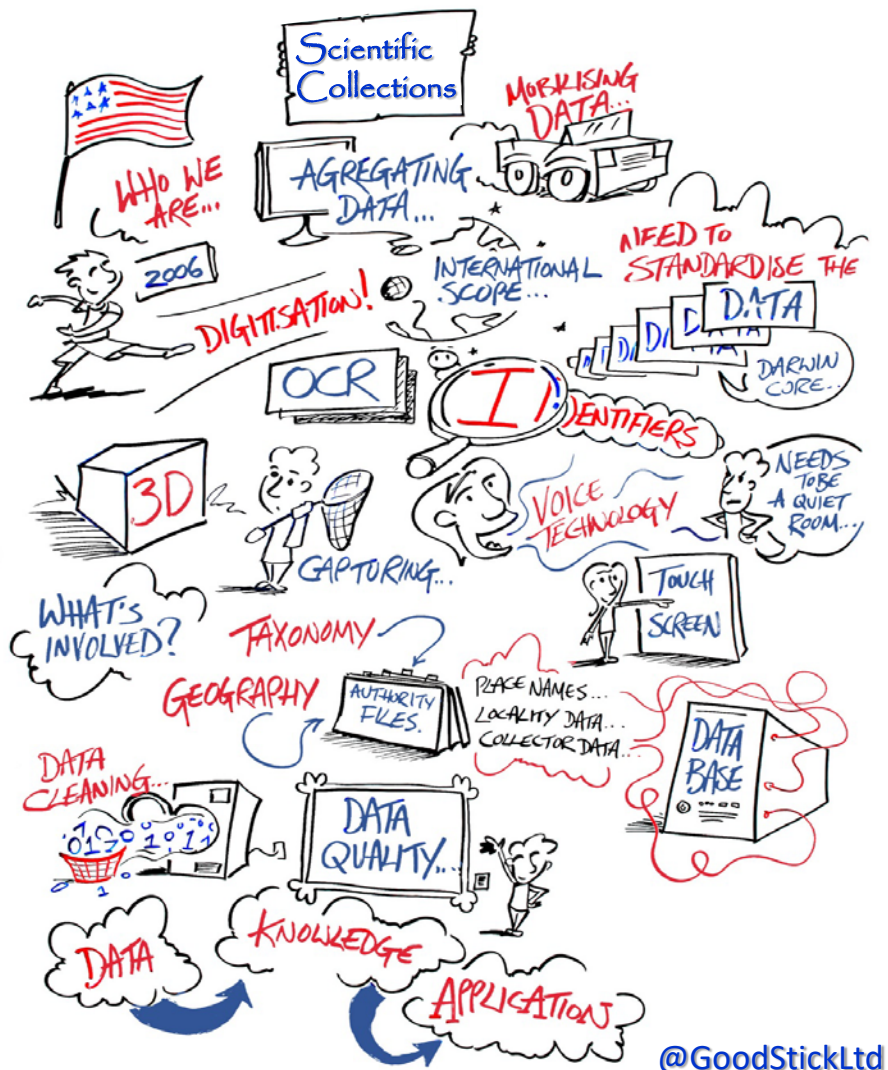 Scientific
Collections
MOBILISING
DATA...
WHO WE
ARE...
AGREGATING
DATA...
2006
DIGITISATION!
INTERNATIONAL
SCOPE...
NEED TO
STANDARDISE THE
DATA
DARWIN
CORE...
OCR
IDENTIFIERS
3D
CAPTURING...
VOICE
TECHNOLOGY
NEEDS
TO BE
A QUIET
ROOM...
TOUCH
SCREEN
WHAT'S
INVOLVED?
TAXONOMY
GEOGRAPHY
AUTHORITY
FILES.
PLACE NAMES...
LOCALITY DATA...
COLLECTOR DATA...
DATA
BASE
DATA
CLEANING...
DATA
QUALITY...
DATA
KNOWLEDGE
APPLICATION
@GoodStickLtd